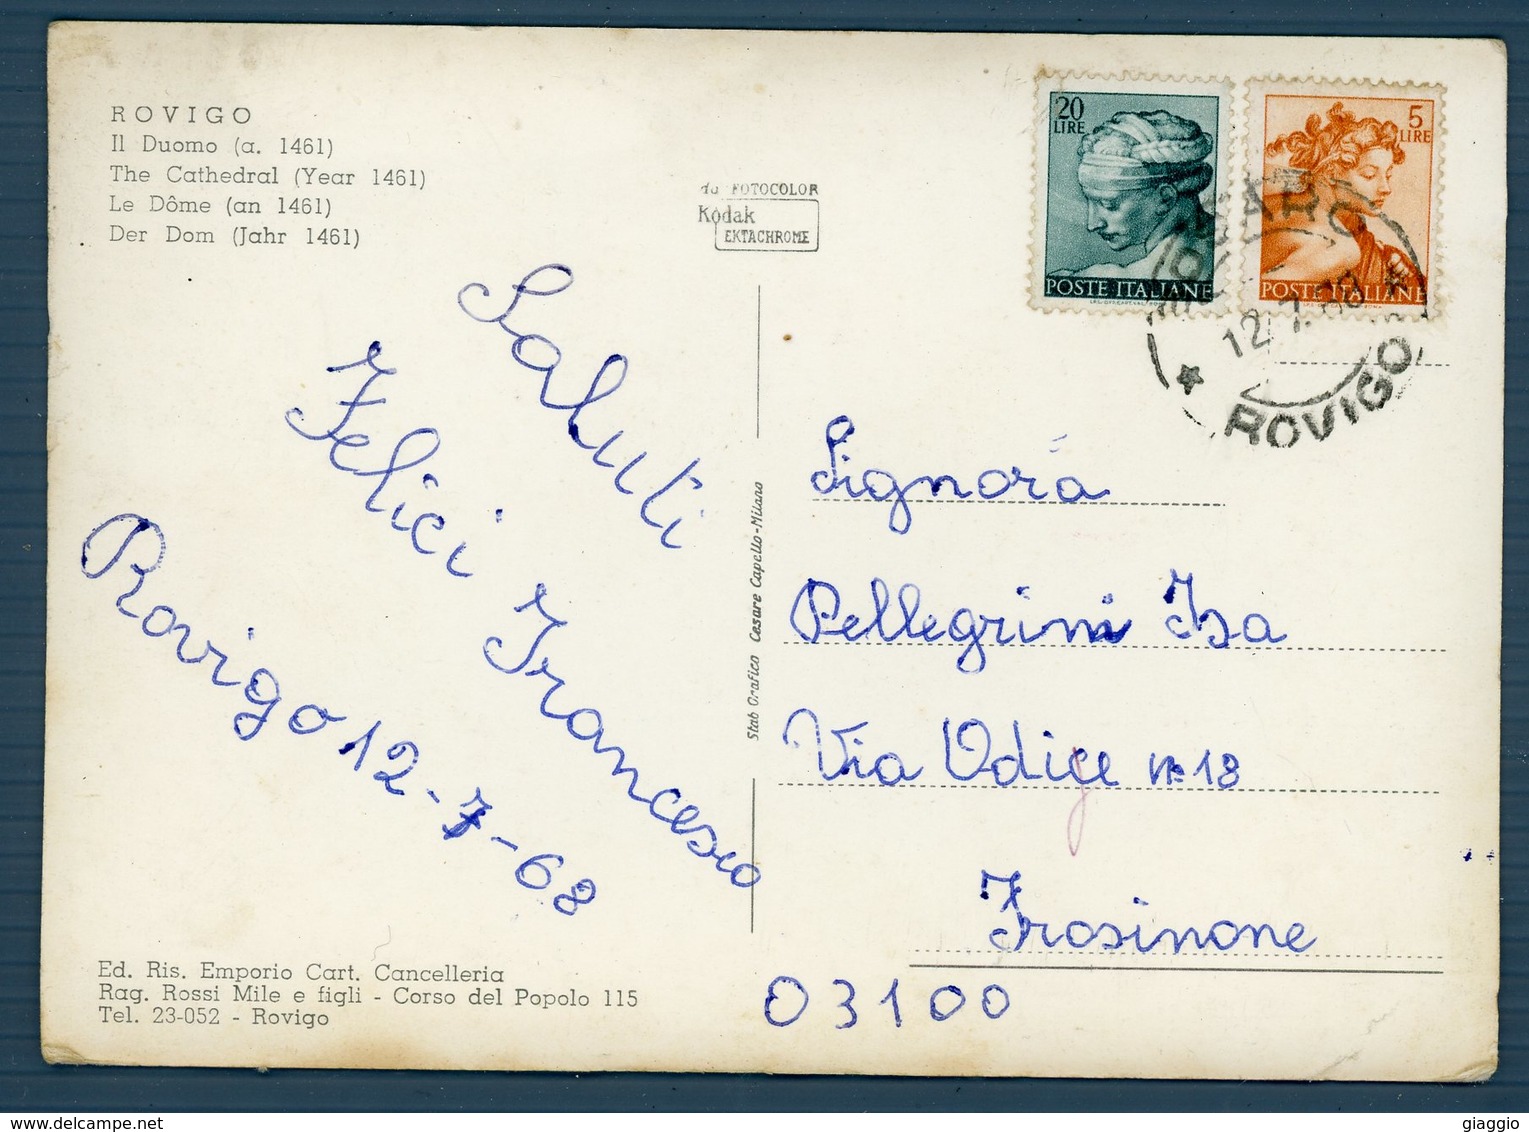 ROVIGO
Il Duomo (a. 1461)
The Cathedral (Year 1461)
Le Dôme (an 1461)
Der Dom (Jahr 1461)
da FOTOCOLOR
Kodak
EKTACHROME
20
LIRE
POSTE ITALIANE
5
LIRE
POSTE ITALIANE
12.7.68
ROVIGO
Saluti
Felici Francesco
Rovigo 12-7-68
Stab Grafico Cesare Capello-Milano
Signora
Pellegrini Isa
Via Adige n° 18
Frosinone
03100
Ed. Ris. Emporio Cart. Cancelleria
Rag. Rossi Mile e figli - Corso del Popolo 115
Tel. 23-052 - Rovigo
giaggio